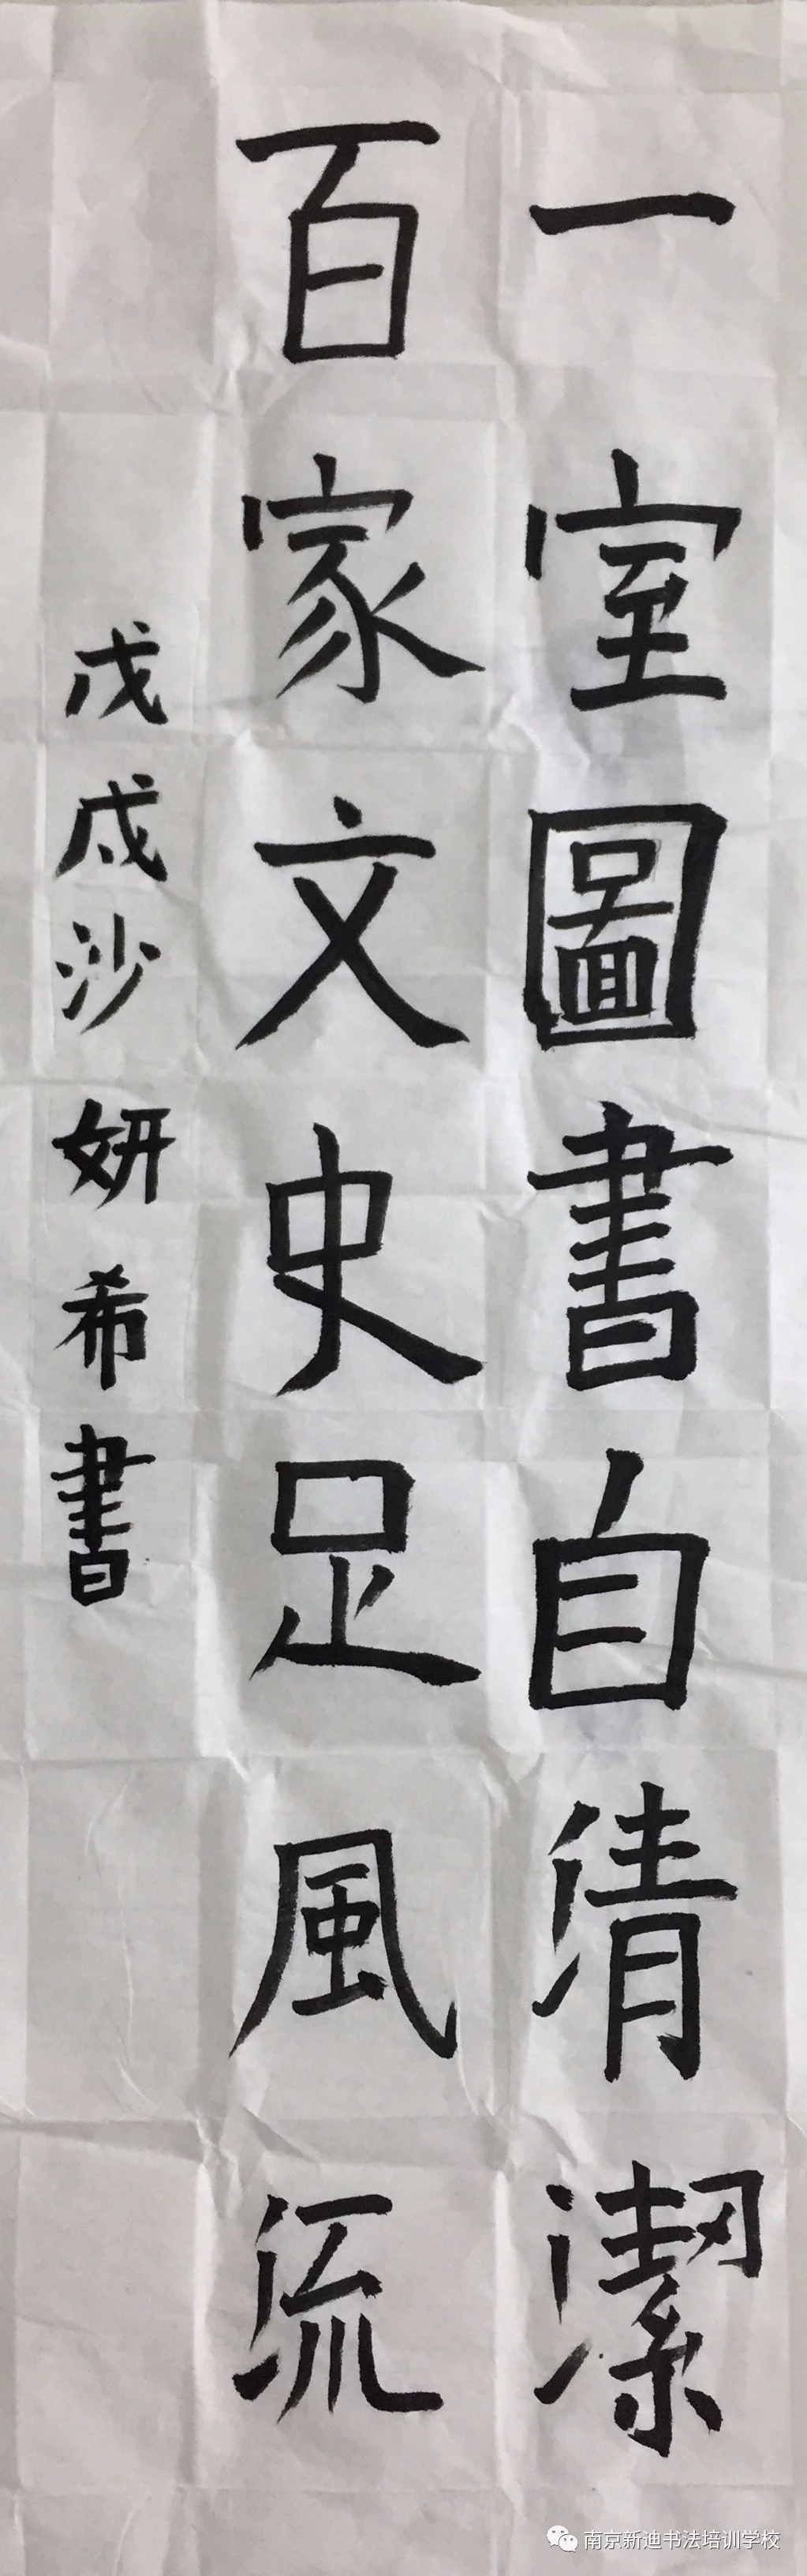 一室圖書自清潔
百家文史足風流
戊戌沙妍希書
南京新迪书法培训学校